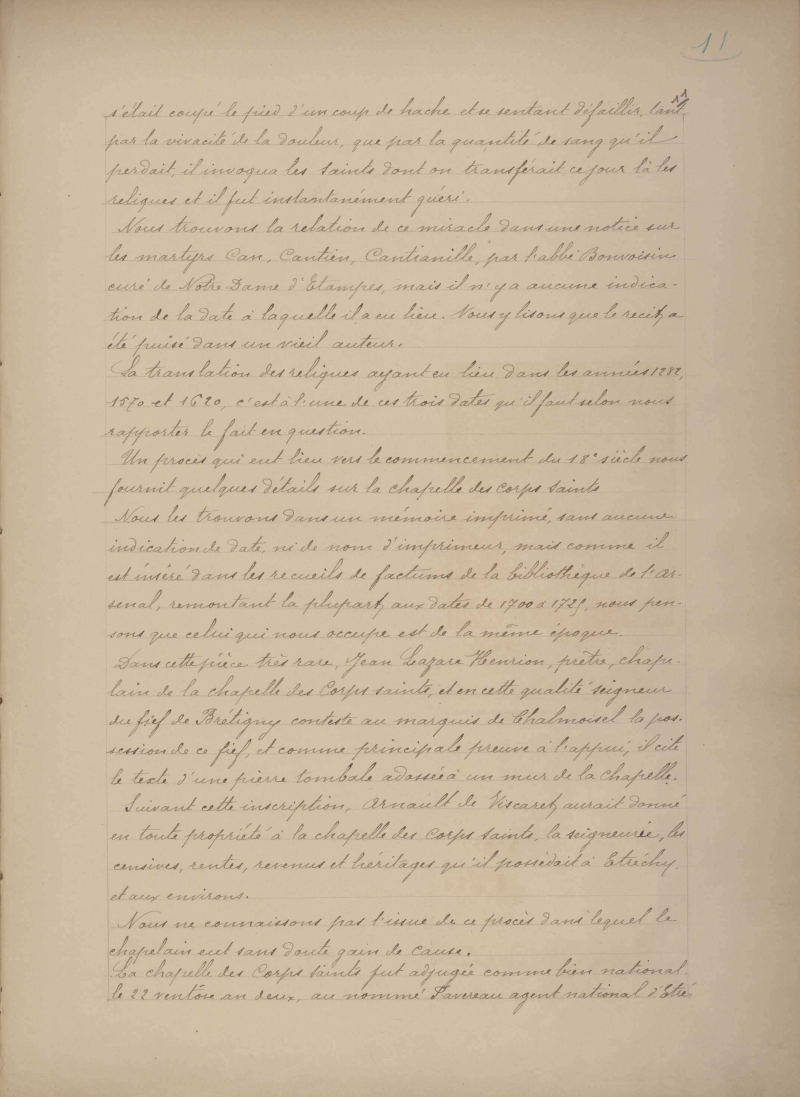 11
s'était coupé le pied d'un coup de hache et se sentant défaillir, tant
par la vivacité de la douleur, que par la quantité de sang qu'il
perdait, il invoqua les saints dont on transférait ce jour là les
reliques et il fut instantanément guéri.
Nous trouvons la relation de ce miracle dans une notice sur
les martyrs Can, Cantien, Cantianille, par l'abbé Bonvoisin
curé de Notre Dame d'Etampes, mais il n'y a aucune indica-
tion de la date à laquelle il a eu lieu. Nous y lisons que le recit a
été puisé dans un vieil auteur.
La translation des reliques ayant eu lieu dans les années 1282,
1570 et 1620, c'est à l'une de ces trois dates qu'il faut selon nous
rapporter le fait en question.
Un procès qui eut lieu vers le commencement du 18e siècle nous
fournit quelques détails sur la chapelle des corps saints
Nous les trouvons dans un mémoire imprimé, sans aucune
indication de date, ni de nom d'imprimeur, mais comme il
est inséré dans les recueils de factums de la bibliothèque de l'Ar-
senal, remontant la plupart, aux dates de 1700 à 1725, nous pen-
sons que celui qui nous occupe est de la même époque.
Dans cette pièce très rare, Jean Lazare Henrion, prêtre, chape-
lain de la chapelle des Corps saints, et en cette qualité seigneur
du fief de Brétigny conteste au marquis de Chalmoisel la pos-
session de ce fief, et comme principale preuve à l'appui, il cite
le texte d'une pierre tombale adossée à un mur de la chapelle.
Suivant cette inscription, Arnault de Viscaret, aurait donné
en toute propriété à la chapelle des Corps saints, la seigneurie, les
censives, rentes, revenus et héritages qu'il possédait à Etréchy
et aux environs.
Nous ne connaissons pas l'issue de ce procès dans lequel le
chapelain eut sans doute gain de cause.
La chapelle des Corps saints fut adjugée comme bien national
le 22 ventôse an deux, au nommé Pavereau agent national d'Etré